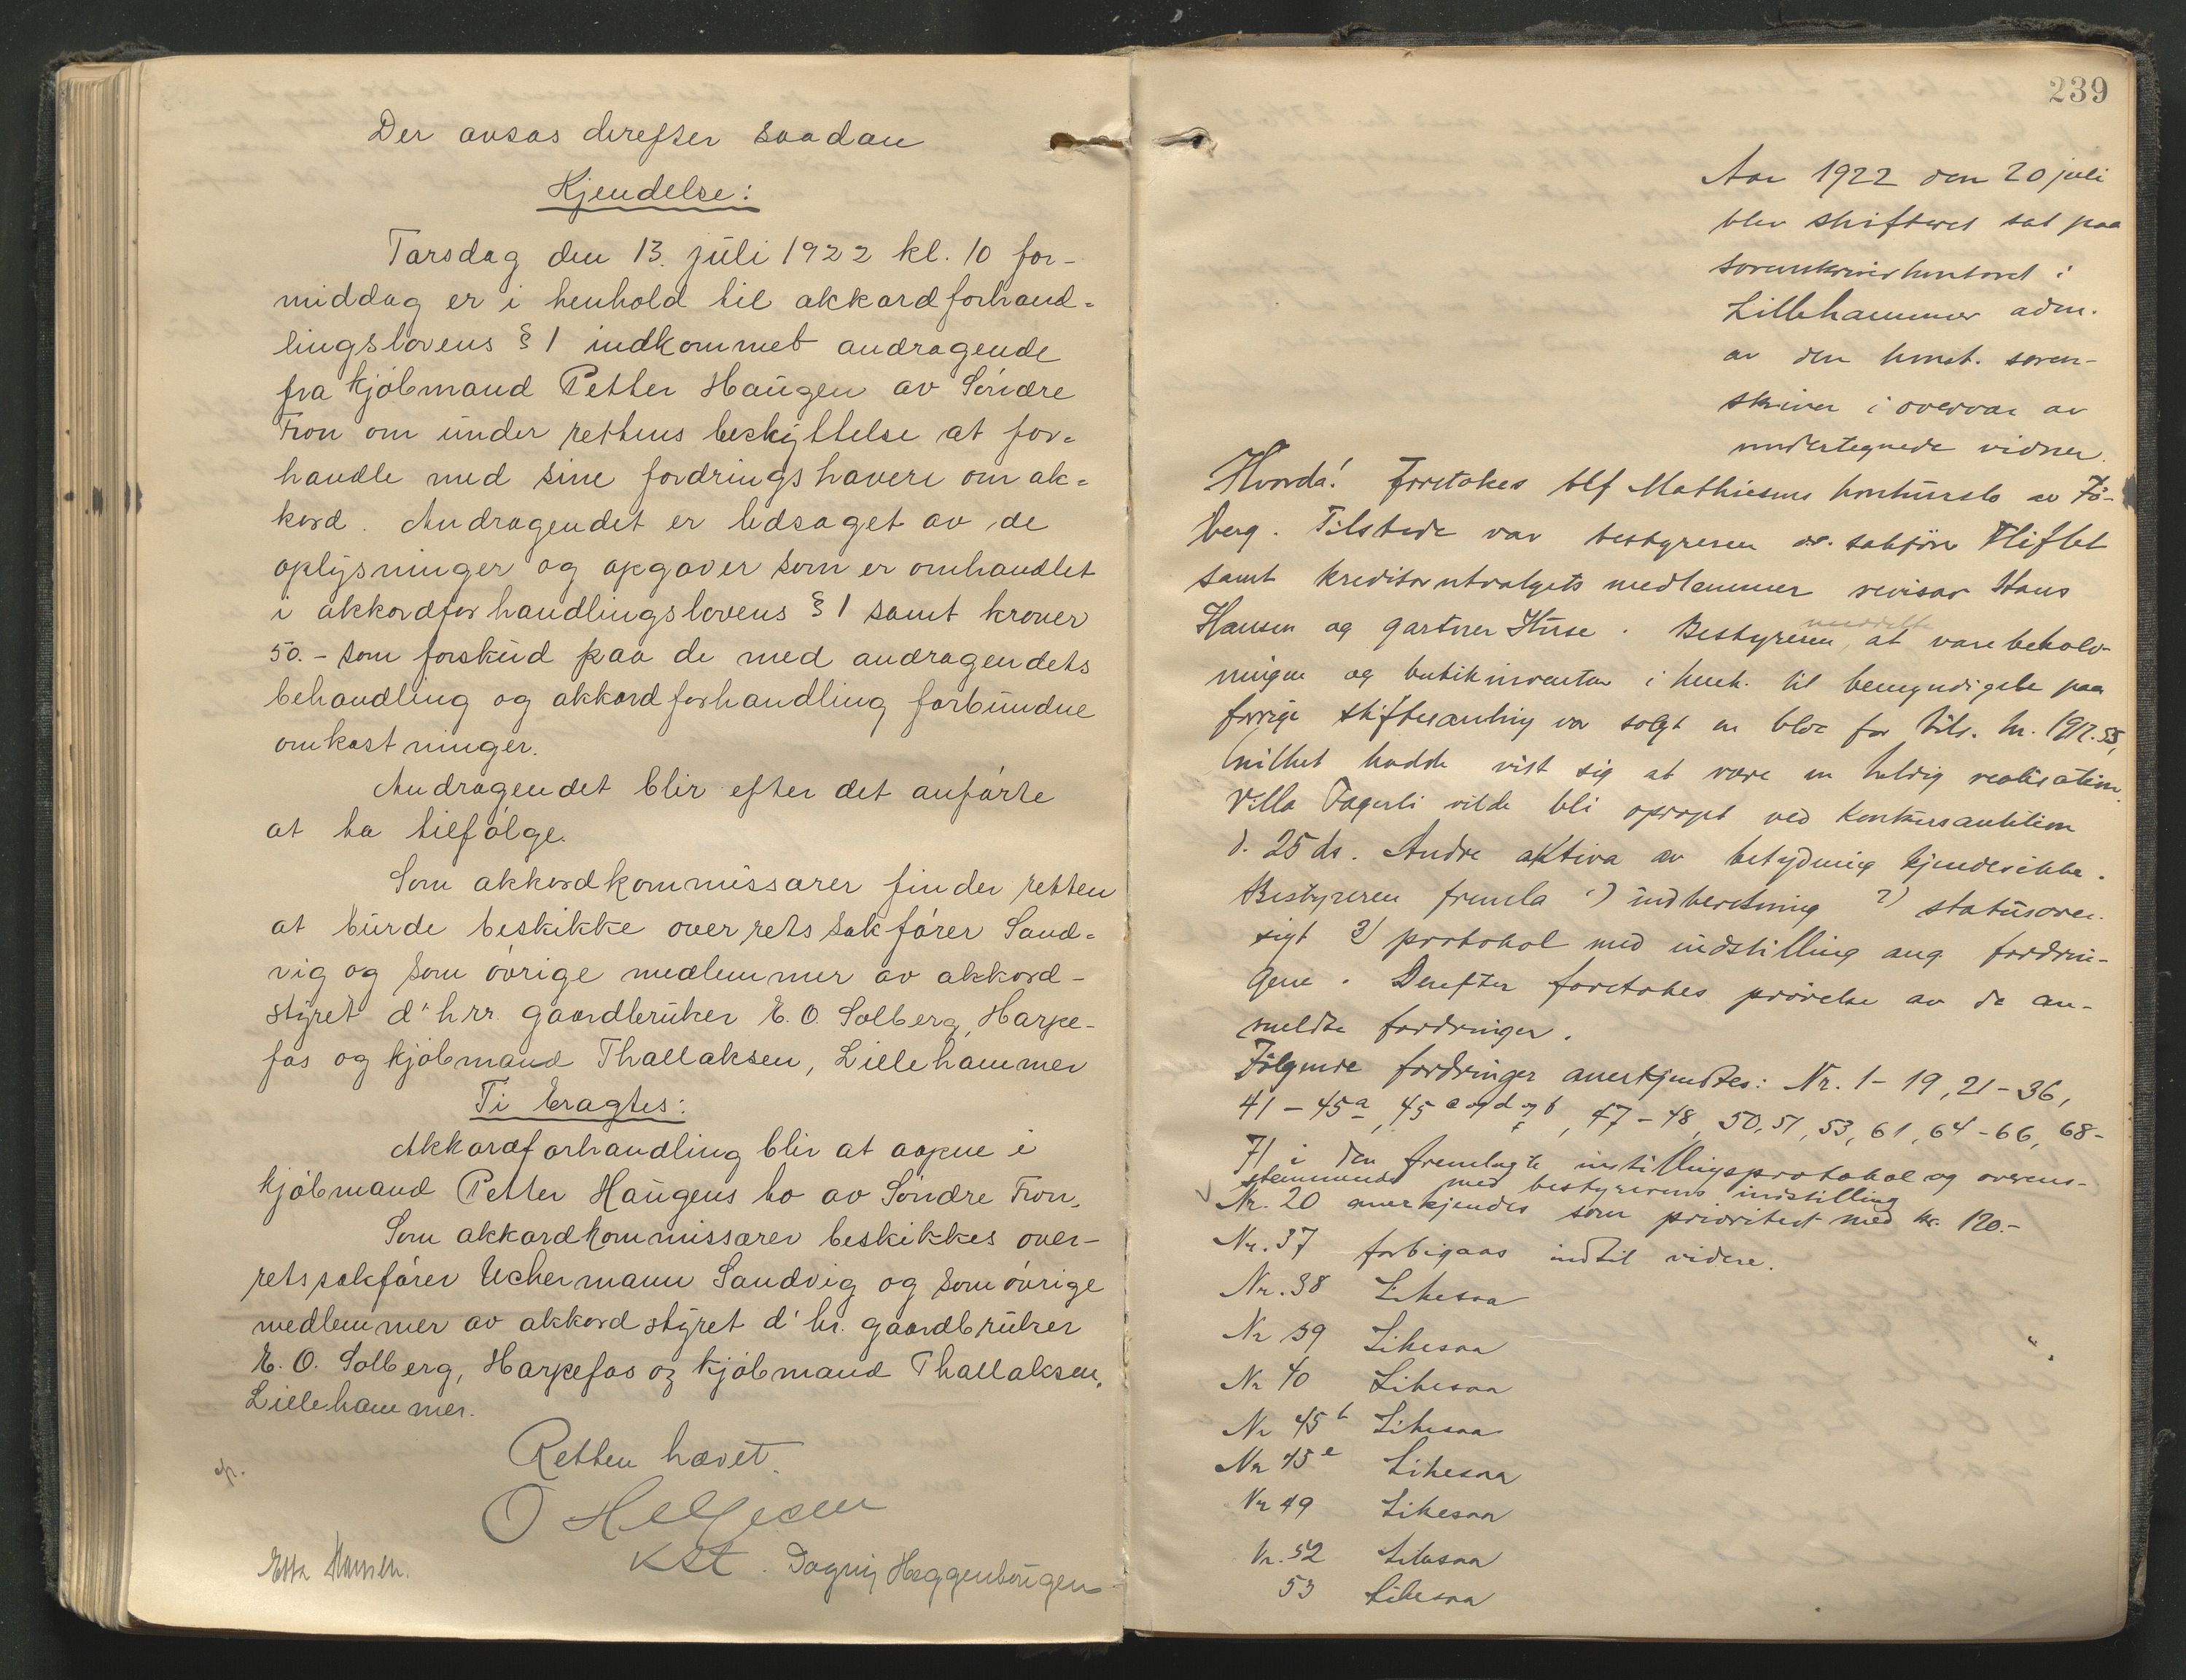 Der avsas derefter saadan
Kjendelse:
Torsdag den 13. juli 1922 kl. 10 for-
middag er i henhold til akkordforhand-
lingslovens § 1 indkommet andragende
fra kjøbmand Petter Haugen av Søndre
Fron om under rettens beskyttelse at for-
handle med sine fordringshavere om ak-
kord. Andragendet er ledsaget av de
oplysninger og opgaver som er omhandlet
i akkordforhandlingslovens § 1 samt kroner
50.- som forskud paa de med andragendets
behandling og akkordforhandling forbundne
omkostninger.
Andragendet blir efter det anførte
at ta tilfølge.
Som akkordkommissærer finder retten
at burde beskikke overretssakfører Sand-
vig og som øvrige medlemmer av akkord-
styret d'hrr. gaardbruker E. O. Solberg, Harpe-
fos og kjøbmand Thallaksen, Lillehammer
Ti Eragtes:
Akkordforhandling blir at aapne i
kjøbmand Petter Haugens bo av Søndre Fron.
Som akkordkommissærer beskikkes over-
retssakfører Uchermann Sandvig og som øvrige
medlemmer av akkordstyret d'hr. gaardbruker
E. O. Solberg, Harpefos og kjøbmand Thallaksen,
Lillehammer.
Retten hævet.
O Helgesen
kst. Dagny Heggenhougen
Hansen.
239
Aar 1922 den 20 juli
blev skifteret sat paa
sorenskriverkontoret i
Lillehammer adm.
av den konst. soren-
skriver i overvær av
undertegnede vidner.
Hvorda! Foretokes Alf Mathiesens konkursbo av Få-
berg. Tilstede var bestyreren o.r. sakfører Kliflet
samt kreditorutvalgets medlemmer revisor Hans
Hansen og gartner Huse. Bestyreren meddelte at varebehold-
ningen og butikinventar i henh. til bemyndigelse paa
forrige skiftesamling var solgt en bloc for tils. kr. 1912.55,
hvilket hadde vist sig at være en heldig realisation.
Villa Fagerli vilde bli opropt ved konkursauktion
d. 25 ds. Andre aktiva av betydning kjendes ikke.
Bestyreren fremla 1) indberetning 2) statusover-
sigt 3) protokol med indstilling ang. fordrin-
gene. Derefter foretokes prøvelse av de an-
meldte fordringer.
Følgende fordringer anerkjendtes: Nr. 1-19, 21-36,
41-45a, 45 c og d og f, 47-48, 50, 51, 53, 61, 64-66, 68-
71 i den fremlagte indstillingsprotokol og overens-
stemmende med bestyrerens indstilling
Nr. 20 anerkjendes som prioritert med kr. 120.-
Nr. 37 forbigaas indtil videre.
Nr. 38 Likesaa
Nr 39 Likesaa
Nr 40 Likesaa
Nr 45b Likesaa
Nr 45e Likesaa
Nr 49 Likesaa
Nr. 52 Likesaa
53 Likesaa